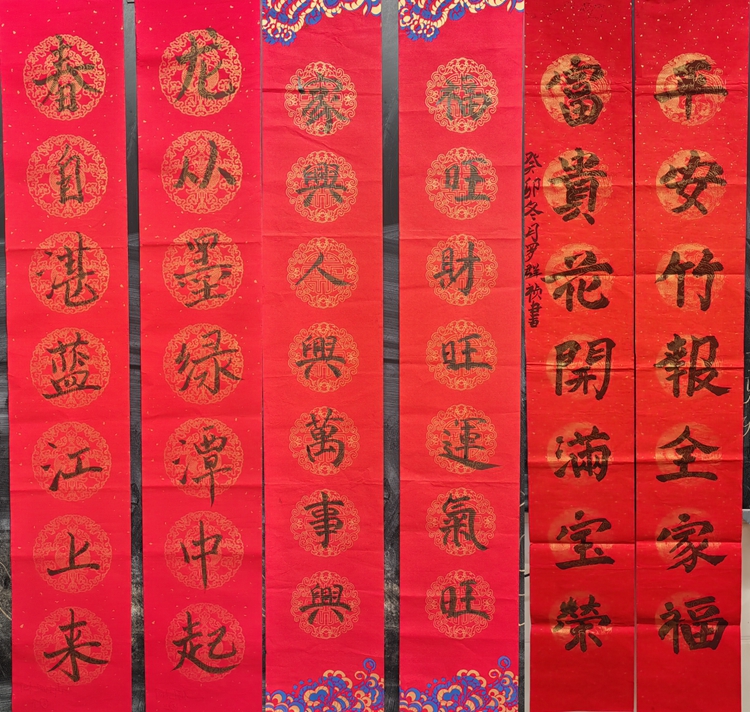 平安竹報全家福
富貴花開滿宝榮
癸卯冬月罗群祯書
福旺財旺運氣旺
家興人興萬事興
龙从墨绿潭中起
春自湛蓝江上来